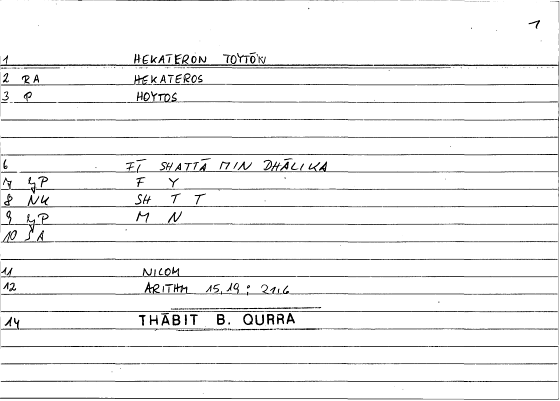 1
1 HEKATERON TOYTŌN
2 RA HEKATEROS
3 P HOYTOS
6 FĪ SHATTĀ MIN DHĀLIKA
7 YP F Y
8 NK SH T T
9 YP M N
10 SA
11 NICOM
12 ARITHM 15,19; 21,6
14 THĀBIT B. QURRA